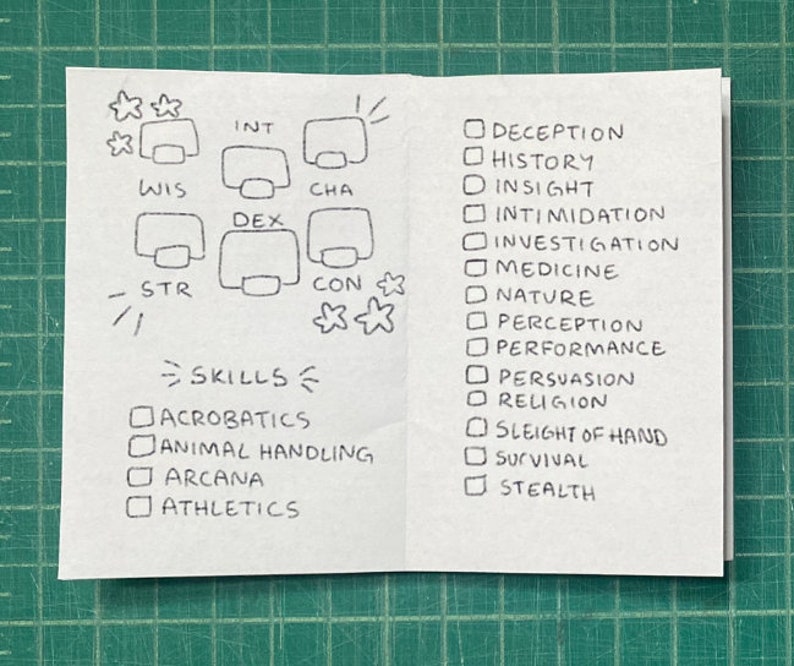 INT
WIS
CHA
DEX
STR
CON
SKILLS
ACROBATICS
ANIMAL HANDLING
ARCANA
ATHLETICS
DECEPTION
HISTORY
INSIGHT
INTIMIDATION
INVESTIGATION
MEDICINE
NATURE
PERCEPTION
PERFORMANCE
PERSUASION
RELIGION
SLEIGHT OF HAND
SURVIVAL
STEALTH